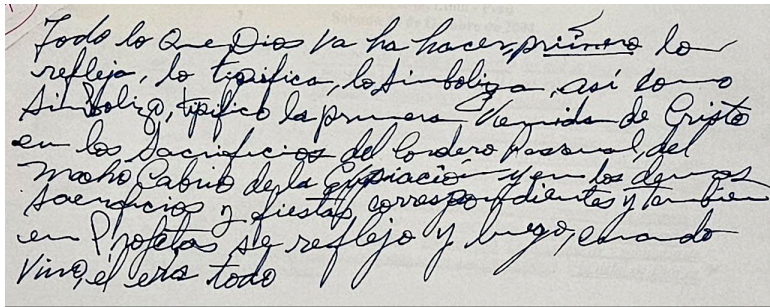 Todo lo que Dios va ha hacer, primero lo
refleja, lo tipifica, lo simboliza, así como
simbolizo, tipifico la primera Venida de Cristo
en los Sacrificios del Cordero Pascual, del
Macho Cabrio de la Expiación y en los demas
sacrificios y fiestas correspondientes y tambien
en Profetas se reflejo y luego, cuando
vino, él era todo